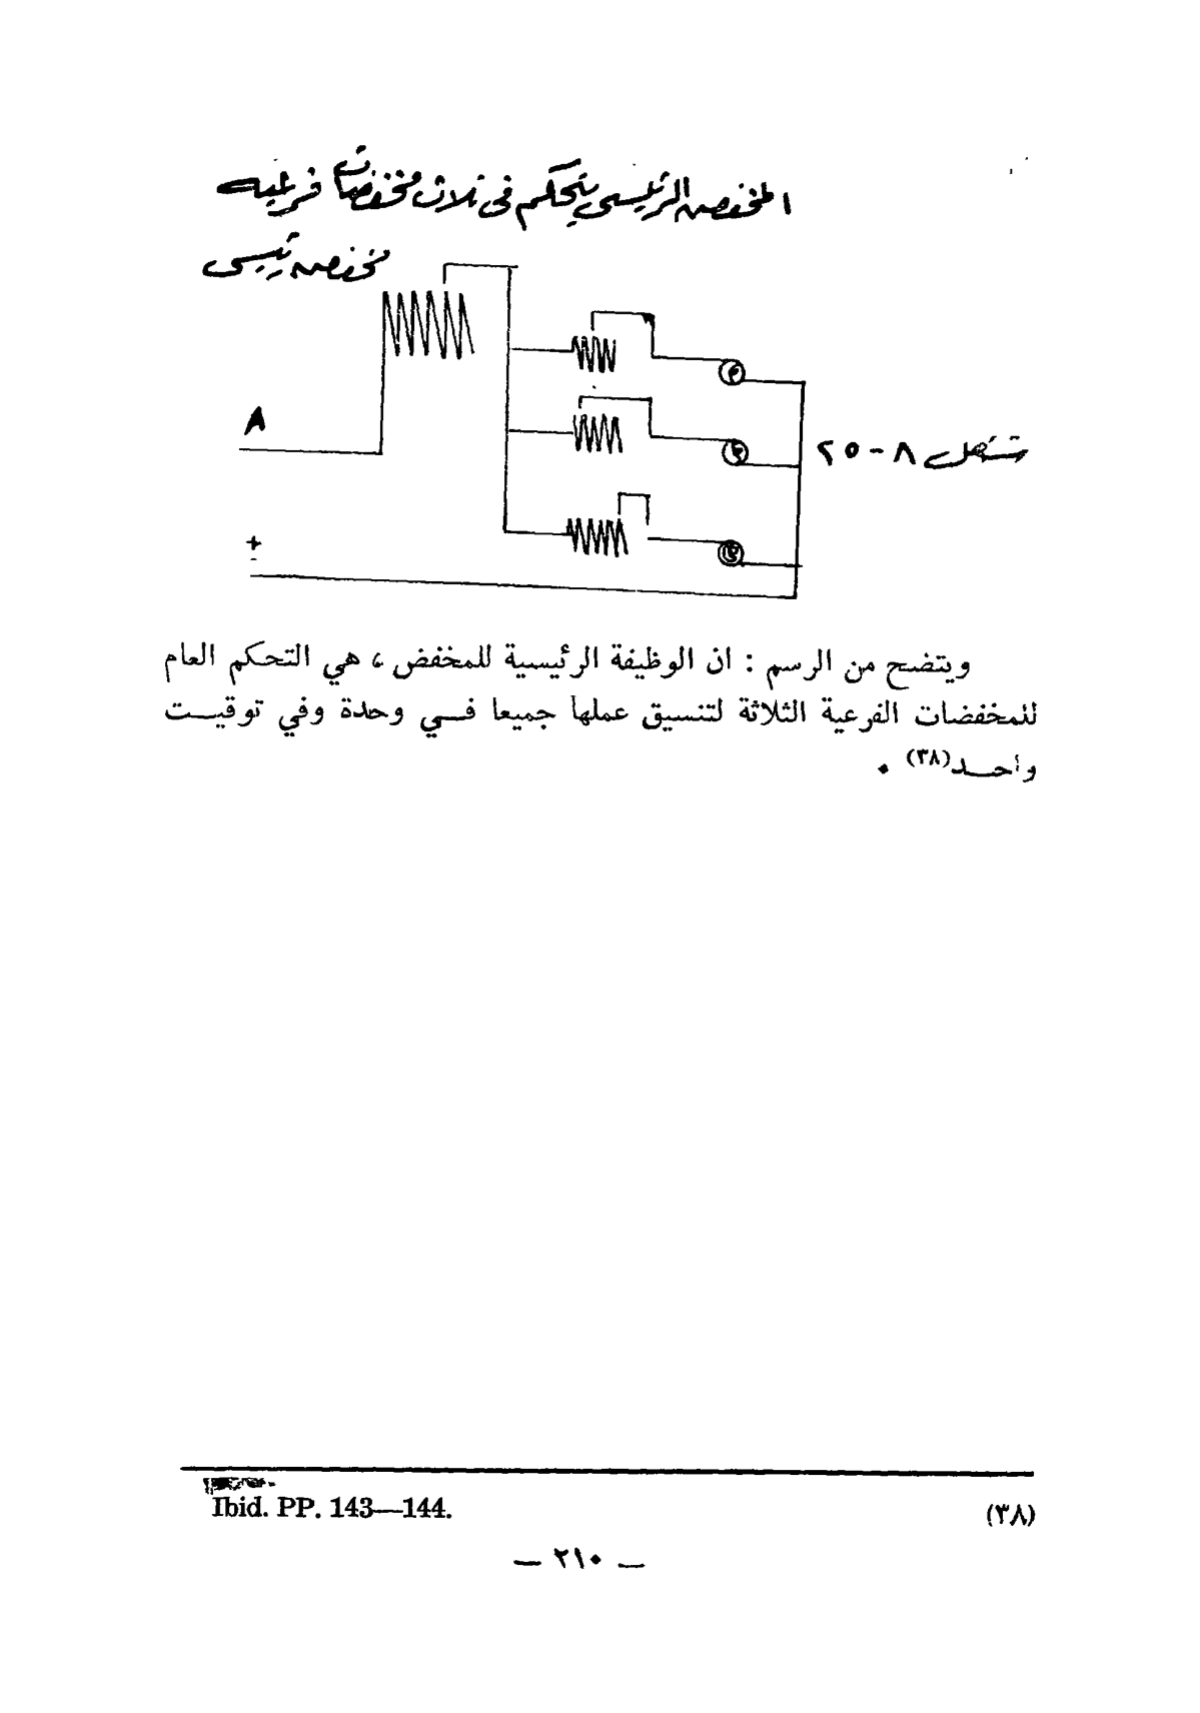 المخفض الرئيسى يتحكم فى ثلاث مخفضات فرعيه
مخفض رئيسى
A
شكل ٨-٢٥
+
-
ويتضح من الرسم : ان الوظيفة الرئيسية للمخفض ، هي التحكم العام
للمخفضات الفرعية الثلاثة لتنسيق عملها جميعا فــي وحدة وفي توقيــت
واحــد(٣٨) .
(٣٨) Ibid. PP. 143—144.
— ٢١٠ —